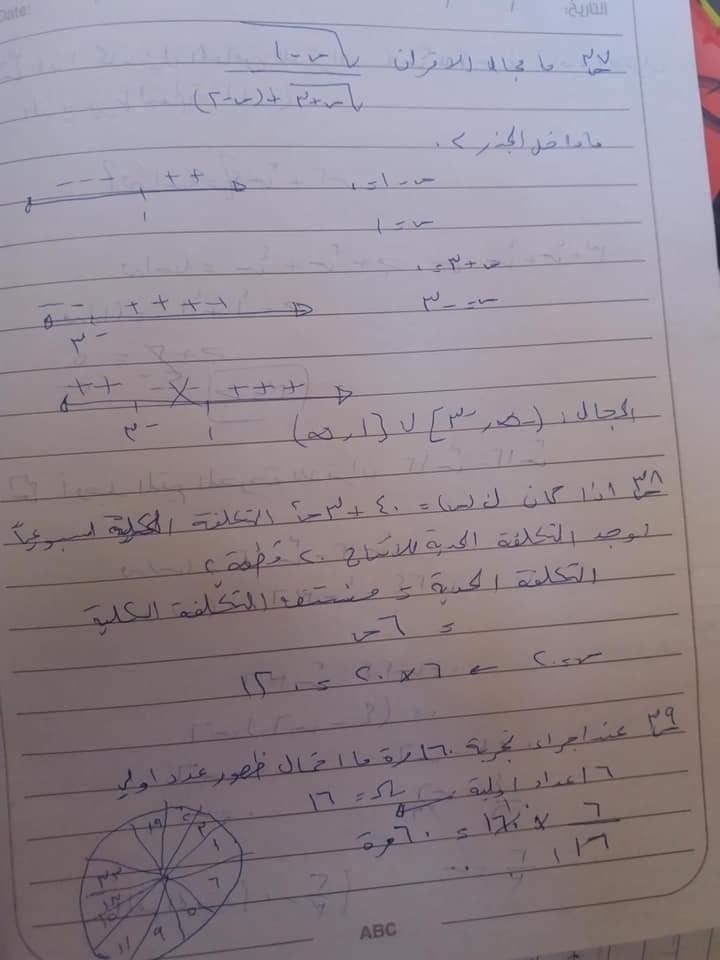 Date:
التاريخ:
٣٧ ما مجال الاقتران √(س-١) / √(س+٣) + (س-٢)
ما داخل الجذر > ٠
س-١=٠
- - - + +
س=١
١
س+٣=٠
- - + + + +
س=-٣
-٣
+ + - - + + +
-٣ ١
المجال: (-∞, -٣] ∪ [١, ∞)
٣٨ اذا كان ك(س)= ٤٠ + ٣س² التكلفة الكلية اسبوعياً
اوجد التكلفة الحدية للانتاج ٢٠ قطعة؟
التكلفة الحدية = مشتقة التكلفة الكلية
= ٦س
س=٢٠ ← ٦×٢٠ = ١٢٠
٣٩ عند اجراء تجربة ١٦٠ مرة ما احتمال ظهور عدد اولي
٦ اعداد اولية Ω = ١٦
٦/١٦ × ١٦٠ = ٦٠ مرة
١٩ ٢ ٣ ١ ٦ ٥ ٩ ١١
ABC